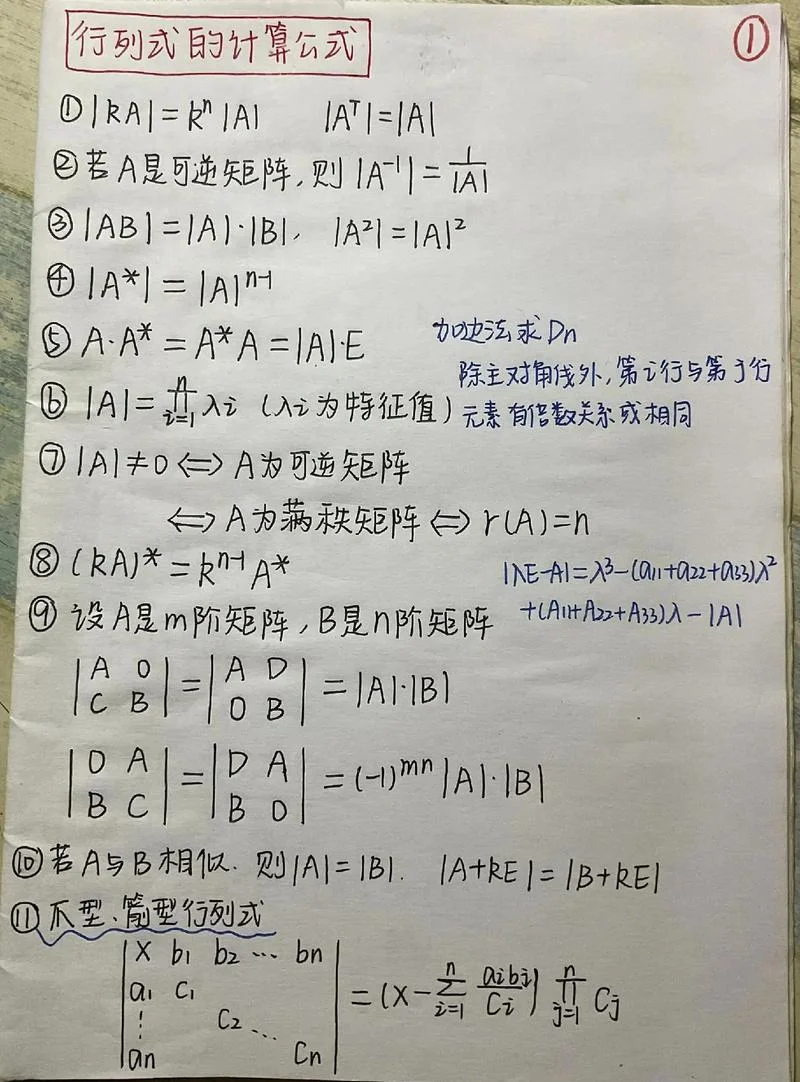 行列式的计算公式
①
① |kA|=kⁿ|A| |Aᵀ|=|A|
② 若A是可逆矩阵,则|A⁻¹|=1/|A|
③ |AB|=|A|·|B|, |A²|=|A|²
④ |A*|=|A|ⁿ⁻¹
⑤ A·A*=A*A=|A|·E
加边法求Dn
除主对角线外,第i行与第j行
元素有倍数关系或相同
⑥ |A|=∏ⁿᵢ₌₁ λi (λi为特征值)
⑦ |A|≠0 ⟺ A为可逆矩阵
⟺ A为满秩矩阵 ⟺ r(A)=n
⑧ (kA)*=kⁿ⁻¹A*
|λE-A|=λ³-(a11+a22+a33)λ²
+(A11+A22+A33)λ-|A|
⑨ 设A是m阶矩阵,B是n阶矩阵
|A 0
C B| = |A D
0 B| = |A|·|B|
|0 A
B C| = |D A
B 0| = (-1)ᵐⁿ|A|·|B|
⑩ 若A与B相似.则|A|=|B|. |A+kE|=|B+kE|
⑪ 爪型、箭型行列式
|x b1 b2 … bn
a1 c1
⋮ c2 …
an cn| = (x-∑ⁿᵢ₌₁ aibi/ci) ∏ⁿⱼ₌₁ cj